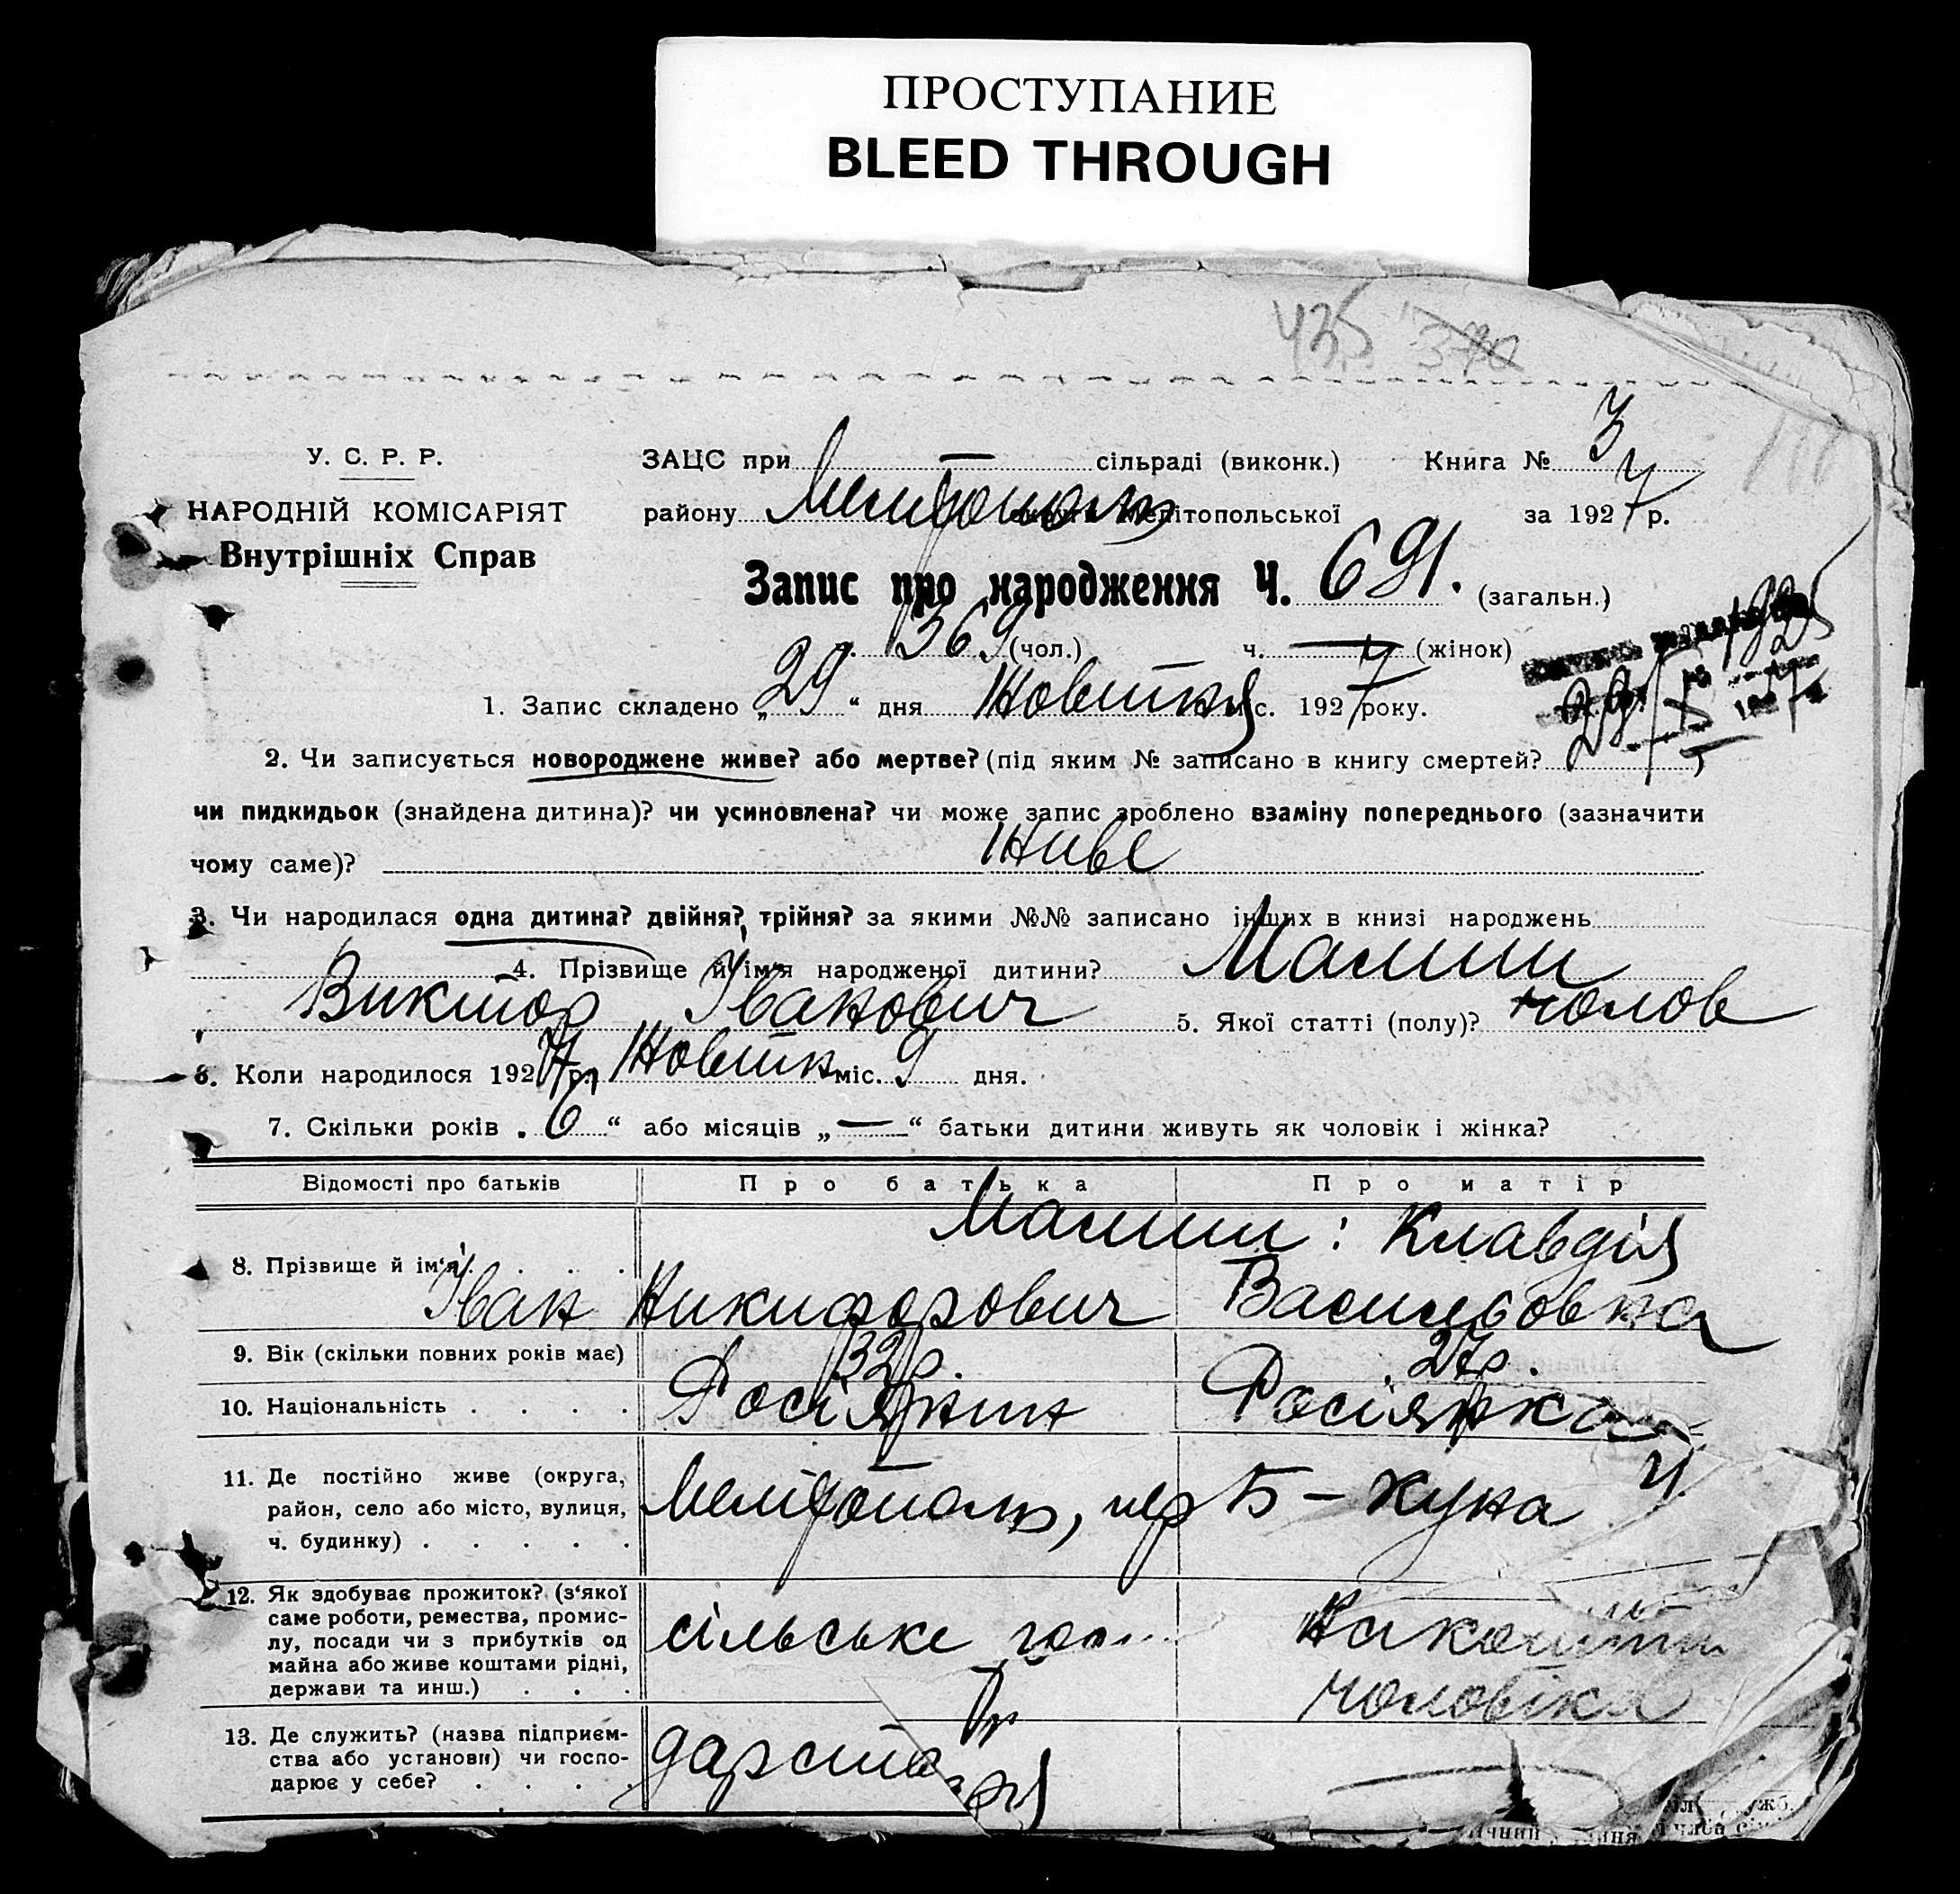 ПРОСТУПАНИЕ
BLEED THROUGH
435 370
У. С. Р. Р.
НАРОДНІЙ КОМІСАРІЯТ
Внутрішніх Справ
ЗАЦС при — сільраді (виконк.) Книга № 3
району Мелітополь округи Мелітопольської за 1927 р.
Запис про народження Ч. 691. (загальн.)
ч. 369 (чол.) ч. — (жінок)
1. Запис складено „29“ дня Жовтня міс. 1927 року.
2. Чи записується новороджене живе? або мертве? (під яким № записано в книгу смертей?
чи пидкидьок (знайдена дитина)? чи усиновлена? чи може запис зроблено взаміну попереднього (зазначити
чому саме)? Живе
3. Чи народилася одна дитина? двійня? трійня? за якими №№ записано інших в книзі народжень
4. Прізвище й ім‘я народженої дитини?
Виктор Іванович 5. Якої статті (полу)? чолов
6. Коли народилося 1927 р. Жовтн міс. 9 дня.
7. Скільки років „6“ або місяців „—“ батьки дитини живуть як чоловік і жінка?
Відомості про батьків Про батька Про матір
Клавдія
8. Прізвище й ім‘я . . . .
Іван Никифорович Васильовна
9. Вік (скільки повних років має) 32р. 27р.
10. Національність . . . . Росіянин Росіянка
11. Де постійно живе (округа,
район, село або місто, вулиця,
ч. будинку) . . . . .
Мелітополь, пер Б – Куна 4.
12. Як здобуває прожиток? (з‘якої
саме роботи, ремества, промис-
лу, посади чи з прибутків од
майна або живе коштами рідні,
держави та инш.) . . .
сільське
чоловіка
13. Де служить? (назва підприєм-
ства або установи) чи госпо-
дарює у себе? . . . .